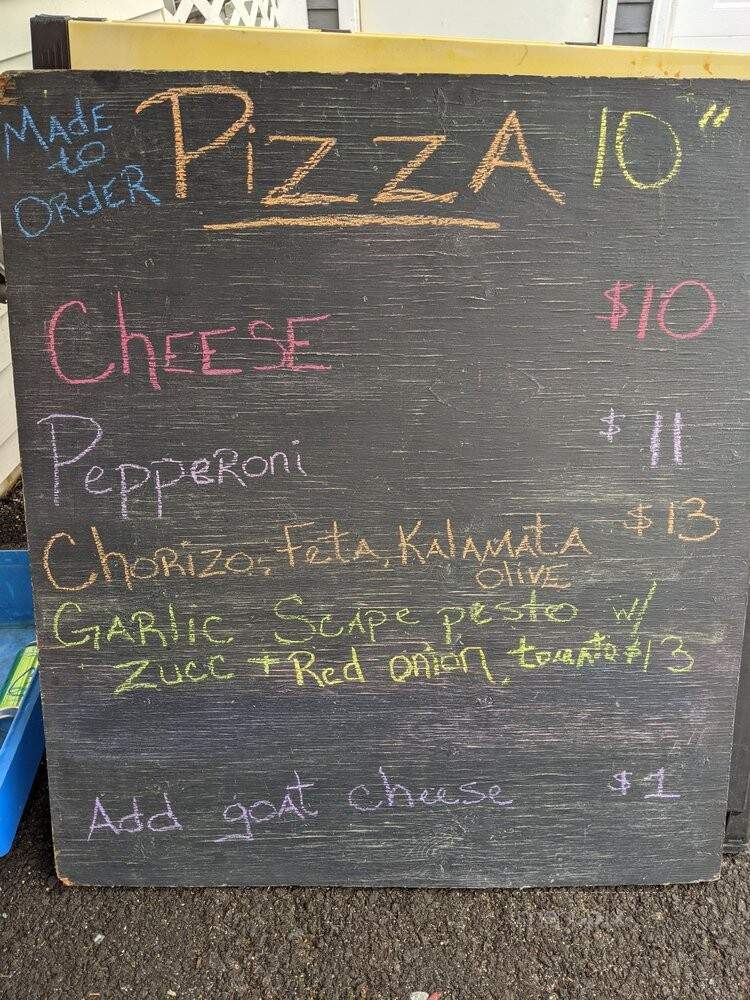 Made to Order
Pizza 10"
Cheese $10
Pepperoni $11
Chorizo, Feta, Kalamata $13
Olive
Garlic Scape pesto w/
Zucc + Red onion, tomato $13
Add goat cheese $1